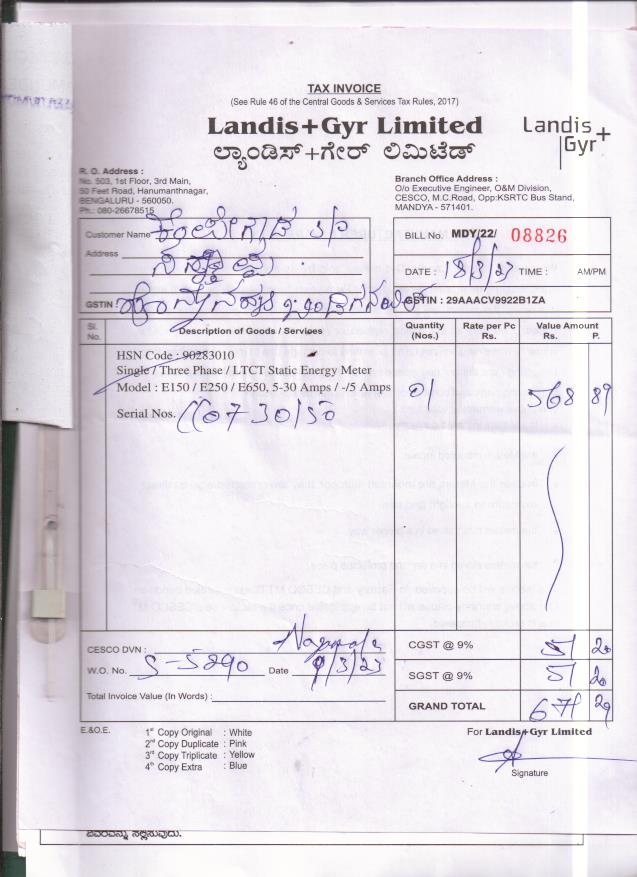 TAX INVOICE
(See Rule 46 of the Central Goods & Services Tax Rules, 2017)
Landis+Gyr Limited
ಲ್ಯಾಂಡಿಸ್+ಗೇರ್ ಲಿಮಿಟೆಡ್
Landis+
Gyr
R. O. Address :
No. 503, 1st Floor, 3rd Main,
50 Feet Road, Hanumanthnagar,
BENGALURU - 560050.
Ph.: 080-26678515
Branch Office Address :
O/o Executive Engineer, O&M Division,
CESCO, M.C.Road, Opp:KSRTC Bus Stand,
MANDYA - 571401.
Customer Name
Address
GSTIN :
BILL No. MDY/22/ 08826
DATE : 18/3/23 TIME : AM/PM
GSTIN : 29AAACV9922B1ZA
Sl. No. Description of Goods / Services Quantity (Nos.) Rate per Pc Rs. Value Amount Rs. P.
HSN Code : 90283010
Single / Three Phase / LTCT Static Energy Meter
Model : E150 / E250 / E650, 5-30 Amps / -/5 Amps 01 568 89
Serial Nos.
CESCO DVN :
W.O. No. S-5890 Date 9/3/23
Total Invoice Value (In Words) :
CGST @ 9% 51 20
SGST @ 9% 51 20
GRAND TOTAL 671 29
E.&O.E.
1st Copy Original : White
2nd Copy Duplicate : Pink
3rd Copy Triplicate : Yellow
4th Copy Extra : Blue
For Landis+Gyr Limited
Signature